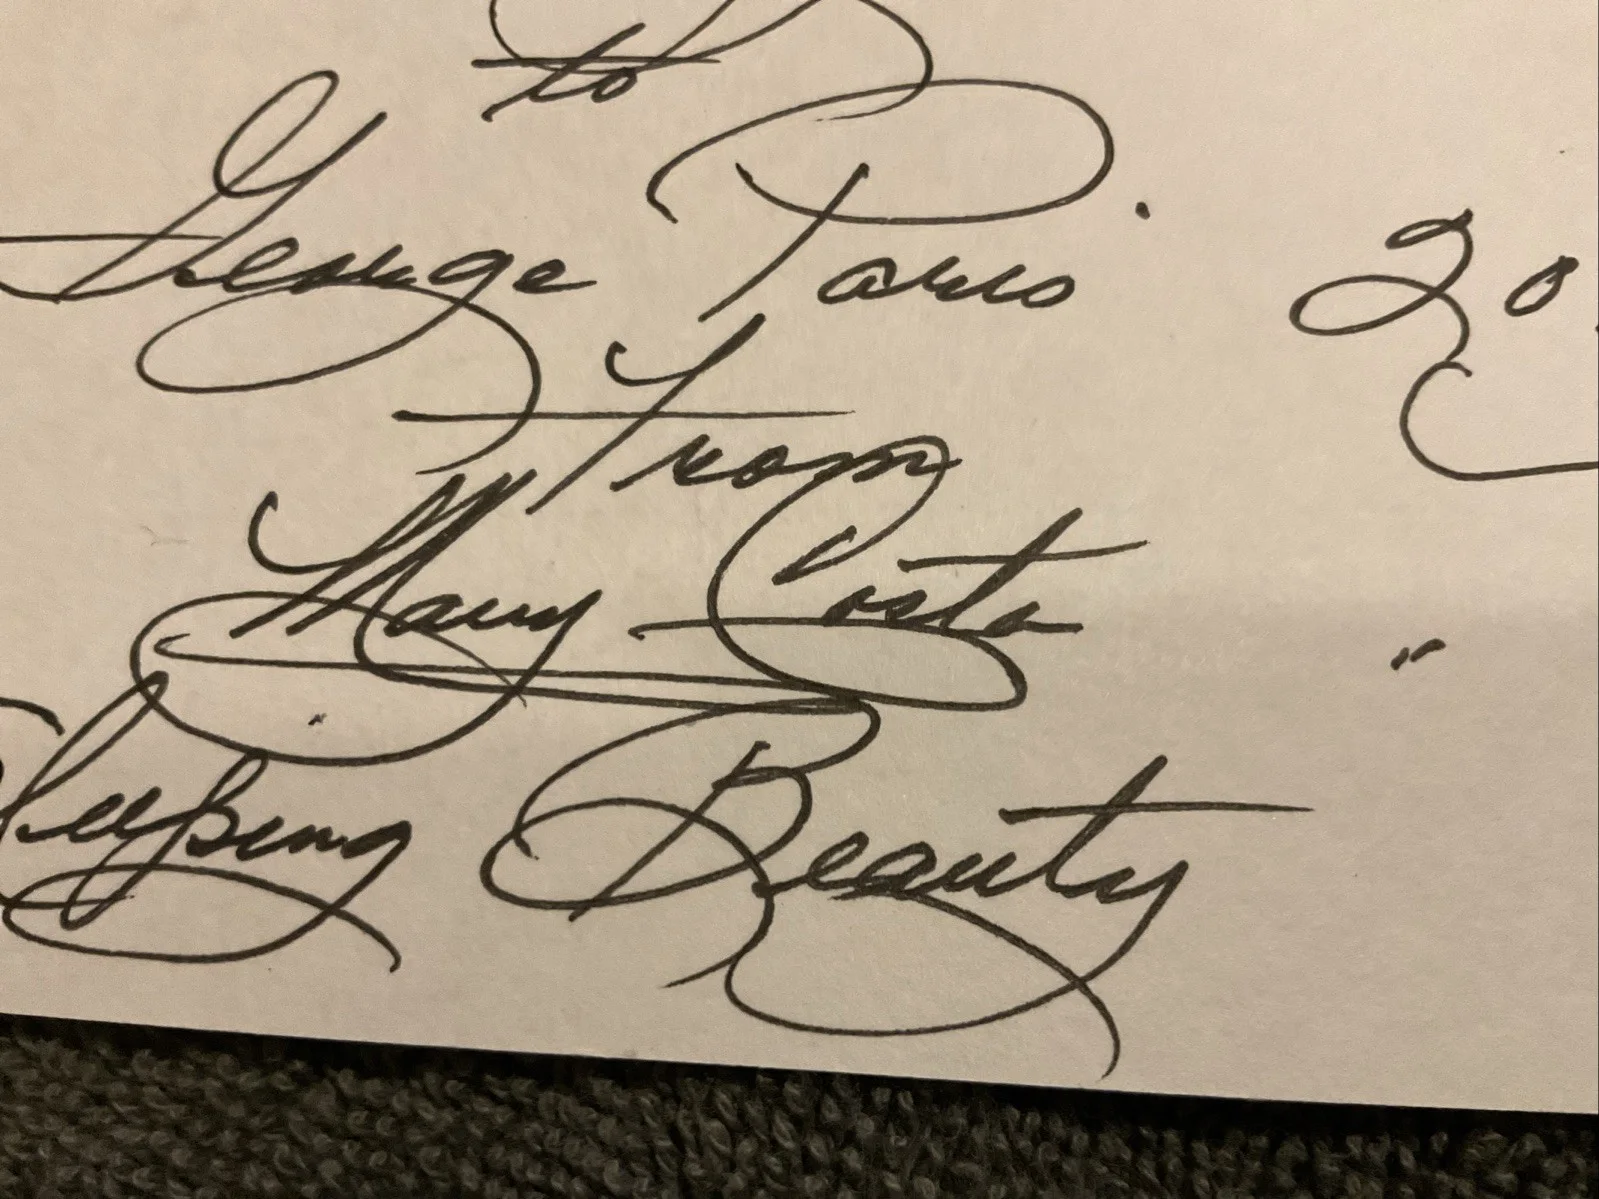 to
George Parro 20
From
Mary Costa "
Sleeping Beauty